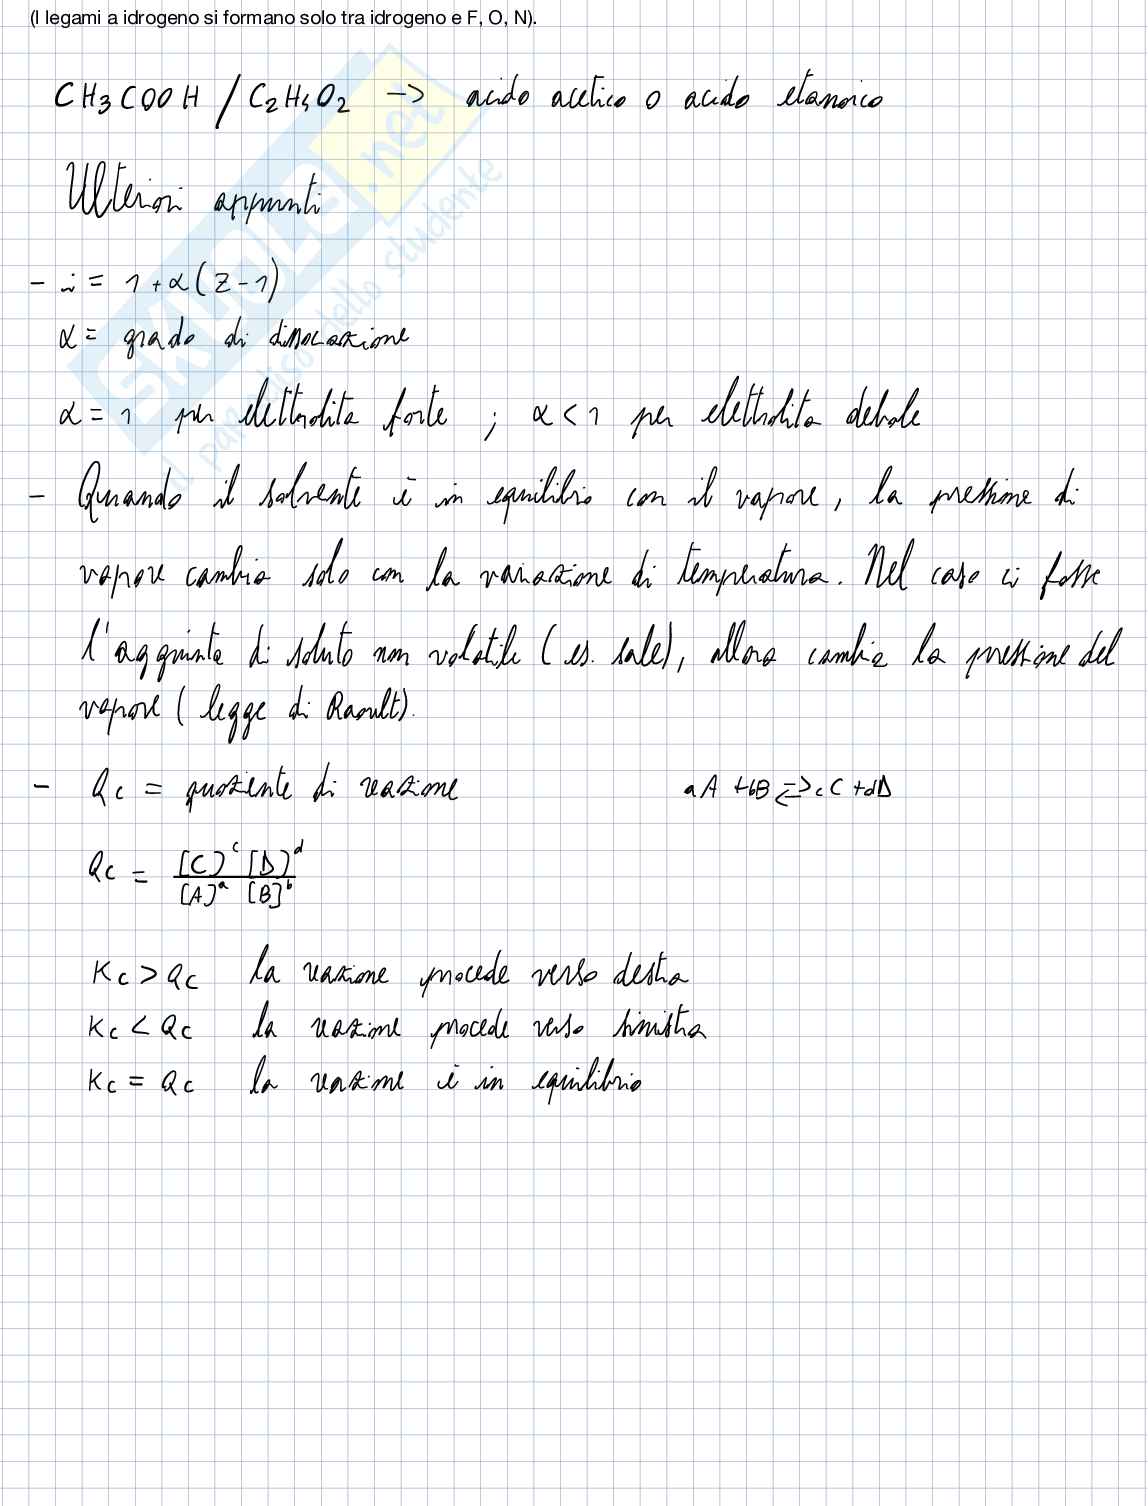 (I legami a idrogeno si formano solo tra idrogeno e F, O, N).
CH3COOH / C2H4O2 -> acido acetico o acido etanoico
Ulteriori appunti
- i = 1 + α(Z-1)
α = grado di dissociazione
α = 1 per elettrolita forte ; α < 1 per elettrolita debole
- Quando il solvente è in equilibrio con il vapore, la pressione di
vapore cambia solo con la variazione di temperatura. Nel caso ci fosse
l'aggiunta di soluto non volatile (es. sale), allora cambia la pressione del
vapore (legge di Raoult).
- Qc = quoziente di reazione aA + bB ⇌ cC + dD
Qc = [C]^c [D]^d / [A]^a [B]^b
Kc > Qc la reazione procede verso destra
Kc < Qc la reazione procede verso sinistra
Kc = Qc la reazione è in equilibrio
SKUOLA.net
il paradiso dello studente